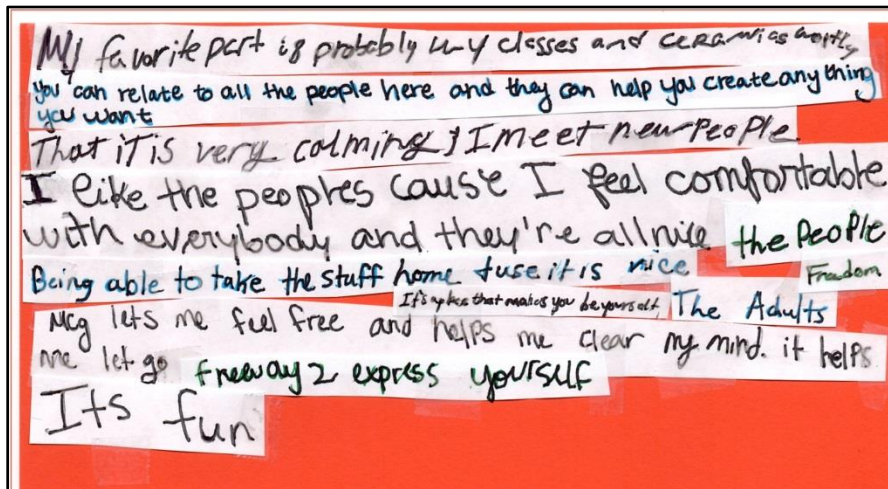 My favorite part is probably my classes and ceramics mostly
you can relate to all the people here and they can help you create any thing
you want
That it is very calming & I meet new people
I like the peoples cause I feel comfortable
with everybody and they're all nice the People
Being able to take the stuff home & use it is nice Freadom
It's a place that makes you be yourself, The Adults
Mcg lets me feel free and helps me clear my mind. it helps
me let go freeway 2 express yourself
Its fun